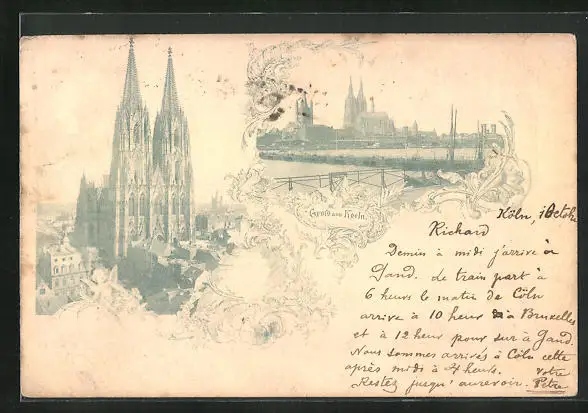 Gruss aus Koeln.
Köln, 1 Octobe
Richard
Demin à midi j'arrive à
Gand. Le train part à
6 heurs le matin de Cöln
arrive à 10 heur à Bruxelles
et à 12 heur pour sur à Gand.
Nous sommes arrivés à Cöln cette
après midi à 4 heurs. Votre
Restez juequ' aurevoir. Petre